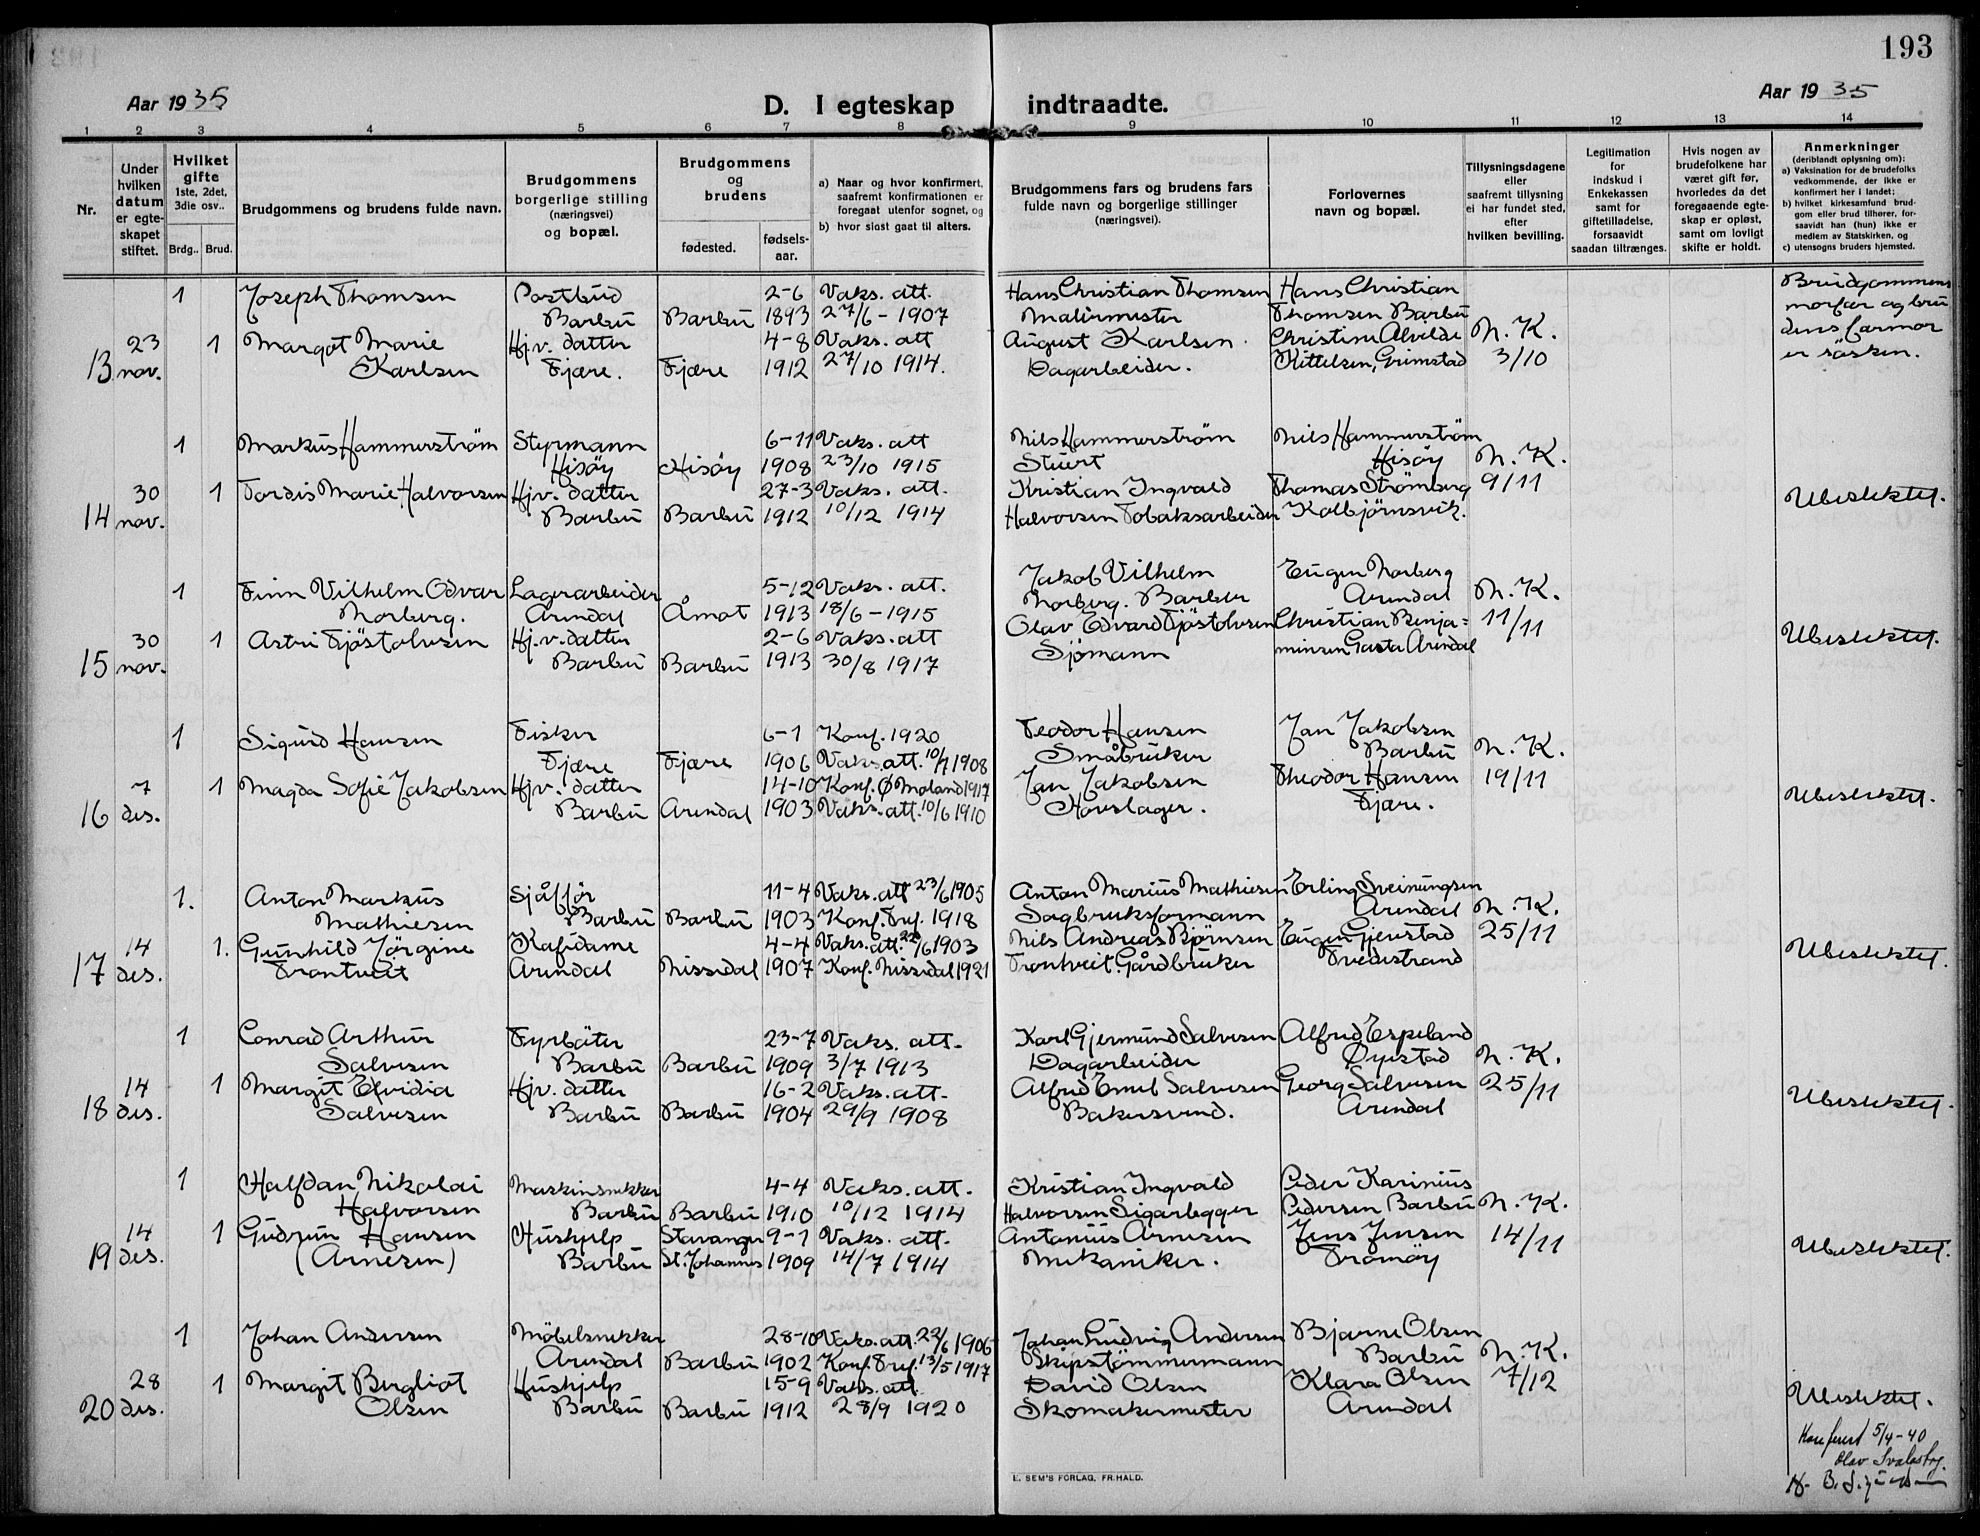 193
Aar 1935
D. I egteskap indtraadte.
Aar 1935
1 2 3 4 5 6 7 8 9 10 11 12 13 14
Nr.
Under hvilken datum er egteskapet stiftet.
Hvilket gifte 1ste, 2det, 3die osv..
Brdg.. Brud.
Brudgommens og brudens fulde navn.
Brudgommens borgerlige stilling (næringsvei) og bopæl.
Brudgommens og brudens
fødested.
fødsels-aar.
a) Naar og hvor konfirmert, saafremt konfirmationen er foregaat utenfor sognet, og
b) hvor sidst gaat til alters.
Brudgommens fars og brudens fars fulde navn og borgerlige stillinger (næringsvei).
Forlovernes navn og bopæl.
Tillysningsdagene eller saafremt tillysning ei har fundet sted, efter hvilken bevilling.
Legitimation for indskud i Enkekassen samt for giftetilladelse, forsaavidt saadan tiltrænges.
Hvis nogen av brudefolkene har været gift før, hvorledes da det foregaaende egteskap er opløst, samt om lovligt skifte er holdt.
Anmerkninger (deriblandt oplysning om):
a) Vaksination for de brudefolks vedkommende, der ikke er konfirmert her i landet;
b) hvilket kirkesamfund brudgom eller brud tilhører, forsaavidt han (hun) ikke er medlem av Statskirken, og
c) utensogns bruders hjemsted.
13 23 nov.
1 Joseph Thomsen Postbud Barbu Barbu 2-6 1893 Vaks. att. 27/6 - 1907 Hans Christian Thomsen Malermester Hans Christian Thomsen Barbu
1 Margot Marie Karlsen Hj.v. datter Fjære. Fjære 4-8 1912 Vaks. att 27/10 1914. August Karlsen. Dagarbeider. Christine Alvilde Kittelsen, Grimstad N. K. 3/10
Brudgommens morfar og brudens farmor er søsken.
14 30 nov.
1 Markus Hammerstrøm Styrmann Hisøy Hisøy 6-11 1908 Vaks. att 23/10 1915 Nils Hammerstrøm Stuert Nils Hammerstrøm Hisøy N. K.
1 Tordis Marie Halvorsen Hj.v. datter Barbu Barbu 27-3 1912 Vaks. att. 10/12 1914 Kristian Ingvald Halvorsen Tobaksarbeider Thomas Strømberg Kolbjørnsvik. 9/11
Ubeslektet.
15 30 nov.
1 Finn Vilhelm Odvar Norberg. Lagerarbeider Arendal Åmot 5-12 1913 Vaks. att. 18/6 - 1915 Jakob Vilhelm Norberg. Barber Eugen Norberg Arendal N. K.
1 Astri Fjøstolvsen Hj.v. datter Barbu Barbu 2-6 1913 Vaks. att 30/8 1917 Olav Edvard Fjøstolvsen Sjømann Christian Benja=minsen Arendal 11/11
Ubeslektet.
16 7 des.
1 Sigurd Hansen Fisker Fjære Fjære 6-1 1906 Konf. 1920 Vaks. att. 10/7 1908 Teodor Hansen Småbruker Jan Jakobsen Barbu N. K.
1 Magda Sofie Jakobsen Hj.v. datter Barbu Arendal 14-10 1903 Konf. Ø Moland 1917 Vaks. att. 10/6 1910 Jan Jakobsen Hovslager. Theodor Hansen Fjære. 19/11
Ubeslektet.
17 14 des.
1. Anton Markus Mathiesen Sjåffør Barbu Barbu 11-4 1903 Vaks. att 23/6 1905 Konf. Tref. 1918 Anton Marius Mathiesen Sagbruksformann Erling Sveinungsen Arendal N. K.
1. Gunhild Jørgine Trontveit Kafidame Arendal Nissedal 4-4 1907 Vaks. att. 22/6 1903 Konf. Nissedal 1921 Nils Andreas Bjørnsen Trontveit. Gårdbruker Eugen Gjerstad Tvedestrand 25/11
Ubeslektet.
18 14 des.
1 Conrad Arthur Salvesen Fyrbøter Barbu Barbu 23-7 1909 Vaks. att. 3/7 1913 Karl Gjermund Salvesen Dagarbeider Alfred Espeland Øyestad N. K.
1 Margit Elvidia Salvesen Hj.v. datter Barbu Barbu 16-2 1904 Vaks. att. 29/9 1908 Alfred Emil Salvesen Bakersvend. Georg Salvesen Arendal 25/11
Ubeslektet.
19 14 des.
1 Halfdan Nikolai Halvorsen Maskinsnekker Barbu Barbu 4-4 1910 Vaks. att. 10/12 1914 Kristian Ingvald Halvorsen Sigarlegger Peder Karinius Pedersen Barbu N. K.
1 Gudrun Hansen (Arnesen) Hushjelp Barbu Stavanger St. Johannes 9-1 1909 Vaks. att. 14/7 1914 Antonius Arnesen Mekaniker. Jens Jensen Tromøy 14/11
Ubeslektet.
20 28 des.
1 Johan Andersen Møbelsnekker Arendal Barbu 28-10 1902 Vaks. att. 22/6 1906 Konf. Tref. 13/5 1917 Johan Ludvig Andersen Skipstømmermann Bjarne Olsen Barbu N. K.
1 Margit Bergliot Olsen Hushjelp Barbu Barbu 15-9 1912 Vaks. att. 28/9 1920 David Olsen Skomakermester Klara Olsen Arendal 7/12
Ubeslektet.
Konferert 5/4-40
Olav
E. SEM'S FORLAG, FR.HALD.